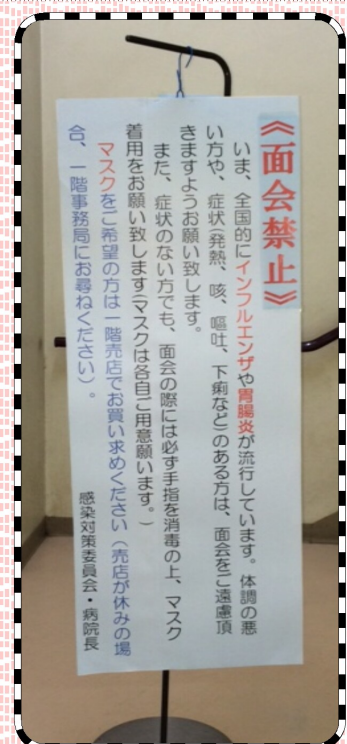 《面会禁止》
いま、全国的にインフルエンザや胃腸炎が流行しています。体調の悪
い方や、症状(発熱、咳、嘔吐、下痢など)のある方は、面会をご遠慮頂
きますようお願い致します。
また、症状のない方でも、面会の際には必ず手指を消毒の上、マスク
着用をお願い致します(マスクは各自ご用意願います。)
マスクをご希望の方は一階売店でお買い求めください(売店が休みの場
合、一階事務局にお尋ねください)。
感染対策委員会・病院長